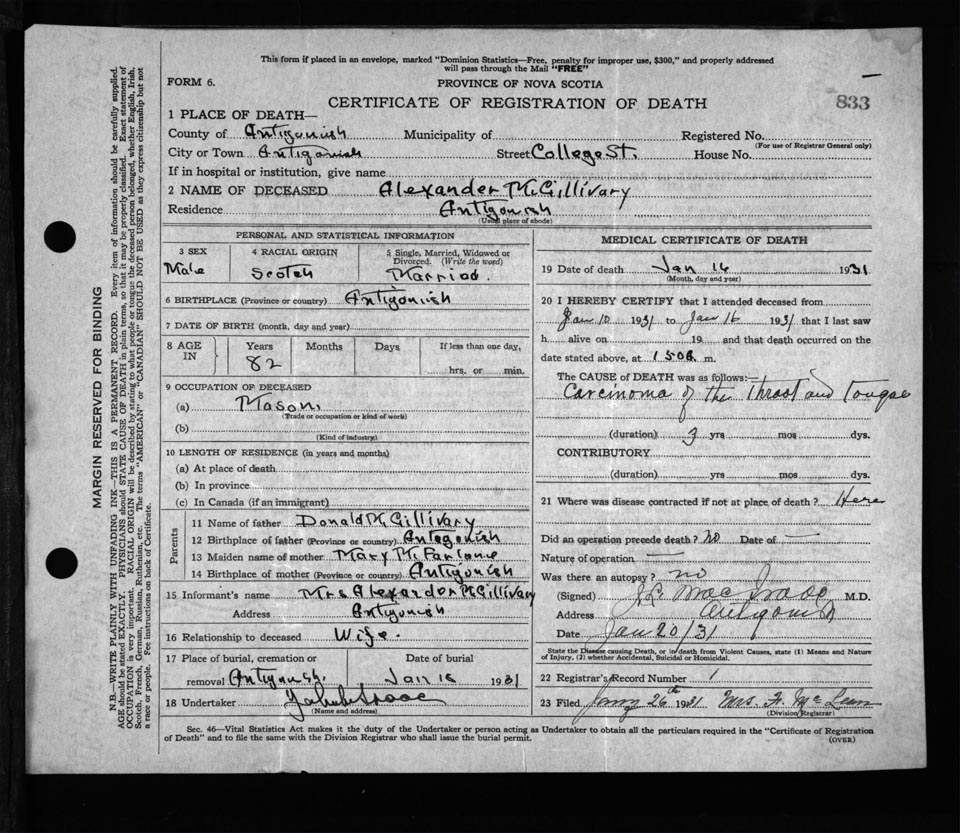 This form if placed in an envelope, marked "Dominion Statistics—Free, penalty for improper use, $300," and properly addressed
will pass through the Mail "FREE"
FORM 6.
PROVINCE OF NOVA SCOTIA
CERTIFICATE OF REGISTRATION OF DEATH
833
1 PLACE OF DEATH—
County of Antigonish Municipality of Registered No.
(For use of Registrar General only)
City or Town Antigonish Street College St. House No.
If in hospital or institution, give name
2 NAME OF DECEASED Alexander McGillivary
Residence Antigonish
(Usual place of abode)
PERSONAL AND STATISTICAL INFORMATION
3 SEX 4 RACIAL ORIGIN 5 Single, Married, Widowed or
Divorced. (Write the word)
Male Scotch Married.
6 BIRTHPLACE (Province or country) Antigonish
7 DATE OF BIRTH (month, day and year)
8 AGE IN Years Months Days If less than one day,
82 hrs. or min.
9 OCCUPATION OF DECEASED
(a) Mason.
(Trade or occupation or kind of work)
(b)
(Kind of industry)
10 LENGTH OF RESIDENCE (in years and months)
(a) At place of death
(b) In province
(c) In Canada (if an immigrant)
Parents
11 Name of father Donald McGillivary
12 Birthplace of father (Province or country) Antegonish
13 Maiden name of mother Mary McFarlane
14 Birthplace of mother (Province or country) Antigonish
15 Informant's name Mrs Alexander McGillivary
Address Antigonish
16 Relationship to deceased Wife.
17 Place of burial, cremation or Date of burial
removal Antigonish. Jan 18 1931
18 Undertaker
(Name and address)
MEDICAL CERTIFICATE OF DEATH
19 Date of death Jan 16 1931
(Month, day and year)
20 I HEREBY CERTIFY that I attended deceased from
Jan 10 1931 to Jan 16 1931 that I last saw
h alive on 19 and that death occurred on the
date stated above, at m.
The CAUSE of DEATH was as follows:—
Carcinoma of the Throat and Tongue
(duration) 3 yrs mos dys.
CONTRIBUTORY
(duration) yrs mos dys.
21 Where was disease contracted if not at place of death? Here
Did an operation precede death? no Date of —
Nature of operation —
Was there an autopsy? no
(Signed) M.D.
Address Antigonish
Date Jan 20/31
State the Disease causing Death, or in death from Violent Causes, state (1) Means and Nature
of Injury, (2) whether Accidental, Suicidal or Homicidal.
22 Registrar's Record Number
23 Filed 26th 1931 Mrs. McLean
(Division Registrar)
Sec. 46—Vital Statistics Act makes it the duty of the Undertaker or person acting as Undertaker to obtain all the particulars required in the "Certificate of Registration
of Death" and to file the same with the Division Registrar who shall issue the burial permit.
(OVER)
MARGIN RESERVED FOR BINDING
N.B.—WRITE PLAINLY WITH UNFADING INK—THIS IS A PERMANENT RECORD. Every item of information should be carefully supplied.
AGE should be stated EXACTLY. PHYSICIANS should STATE CAUSE OF DEATH in plain terms, so that it may be properly classified. Exact statement of
OCCUPATION is very important. RACIAL ORIGIN will be described by stating to what people or tongue the deceased person belonged, whether English, Irish,
Scotch, French, German, Russian, Ruthenian, etc. The terms "AMERICAN" or "CANADIAN" SHOULD NOT BE USED as they express citizenship but not
a race or people. See instructions on back of Certificate.